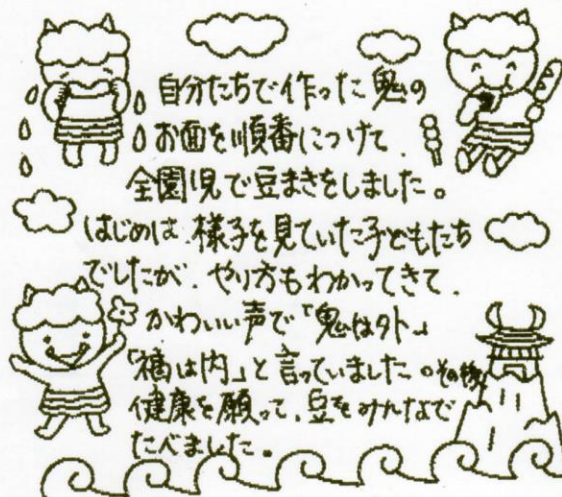 自分たちで作った鬼の
お面を順番につけて、
全園児で豆まきをしました。
はじめは、様子を見ていた子どもたち
でしたが、やり方もわかってきて、
かわいい声で「鬼は外」
「福は内」と言っていました。その後、
健康を願って、豆をみんなで
たべました。